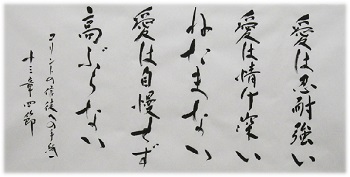 愛は忍耐強い
愛は情け深い
ねたまない
愛は自慢せず
高ぶらない
コリントの信徒への手紙
十三章四節